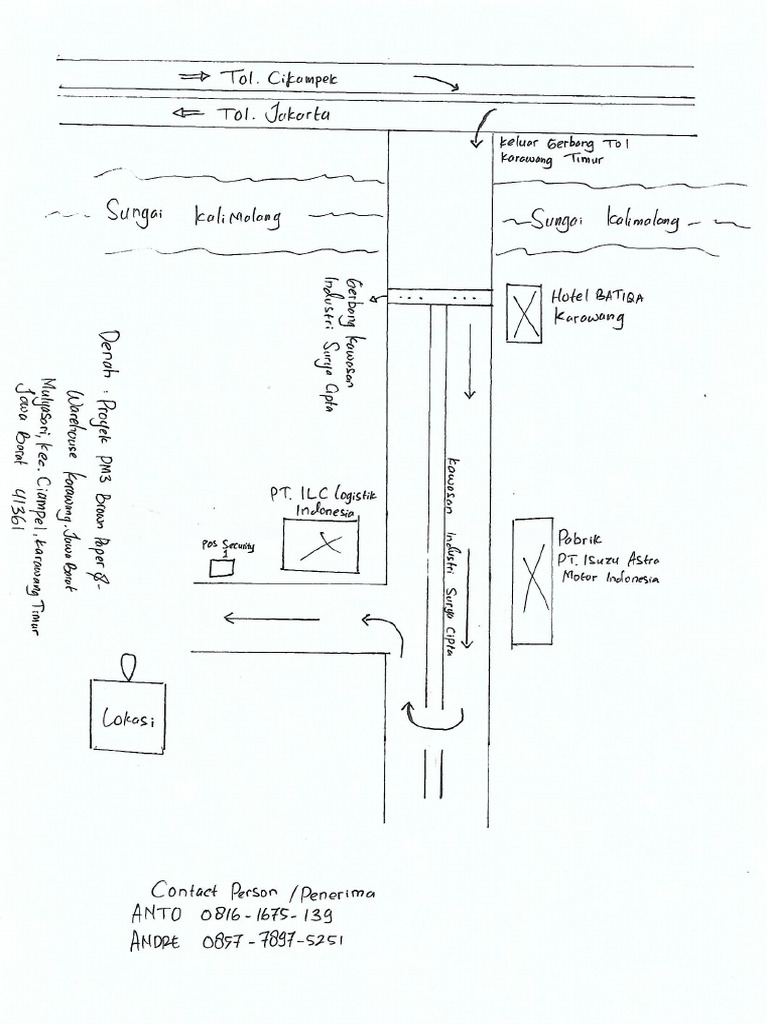 ⇒ Tol. Cikampek
⇐ Tol. Jakarta
Keluar Gerbang Tol
Karawang Timur
Sungai Kalimalang
Sungai Kalimalang
Gerbang Kawasan
Industri Surya Cipta
Hotel BATIQA
Karawang
Denah : Proyek PM3 Brown Paper &-
Warehouse Karawang. Jawa Barat
Mulyasari, Kec. Ciampel, Karawang Timur
Jawa Barat 41361
PT. ILC Logistik
Indonesia
Pos Security
1
Kawasan Industri Surya Cipta
Pabrik
PT. Isuzu Astra
Motor Indonesia
Lokasi
Contact Person / Penerima
ANTO 0816-1675-139
ANDRE 0857-7897-5251